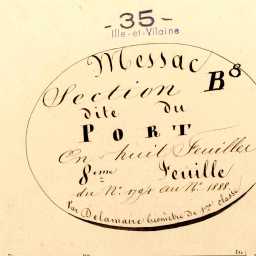 - 35 -
Ille-et-Vilaine
Messac
Section B8
dite du
PORT
En huit Feuilles
8ème Feuille
du N° 1794 au N° 1888.
Par Delamarre Géomètre de 1ère classe